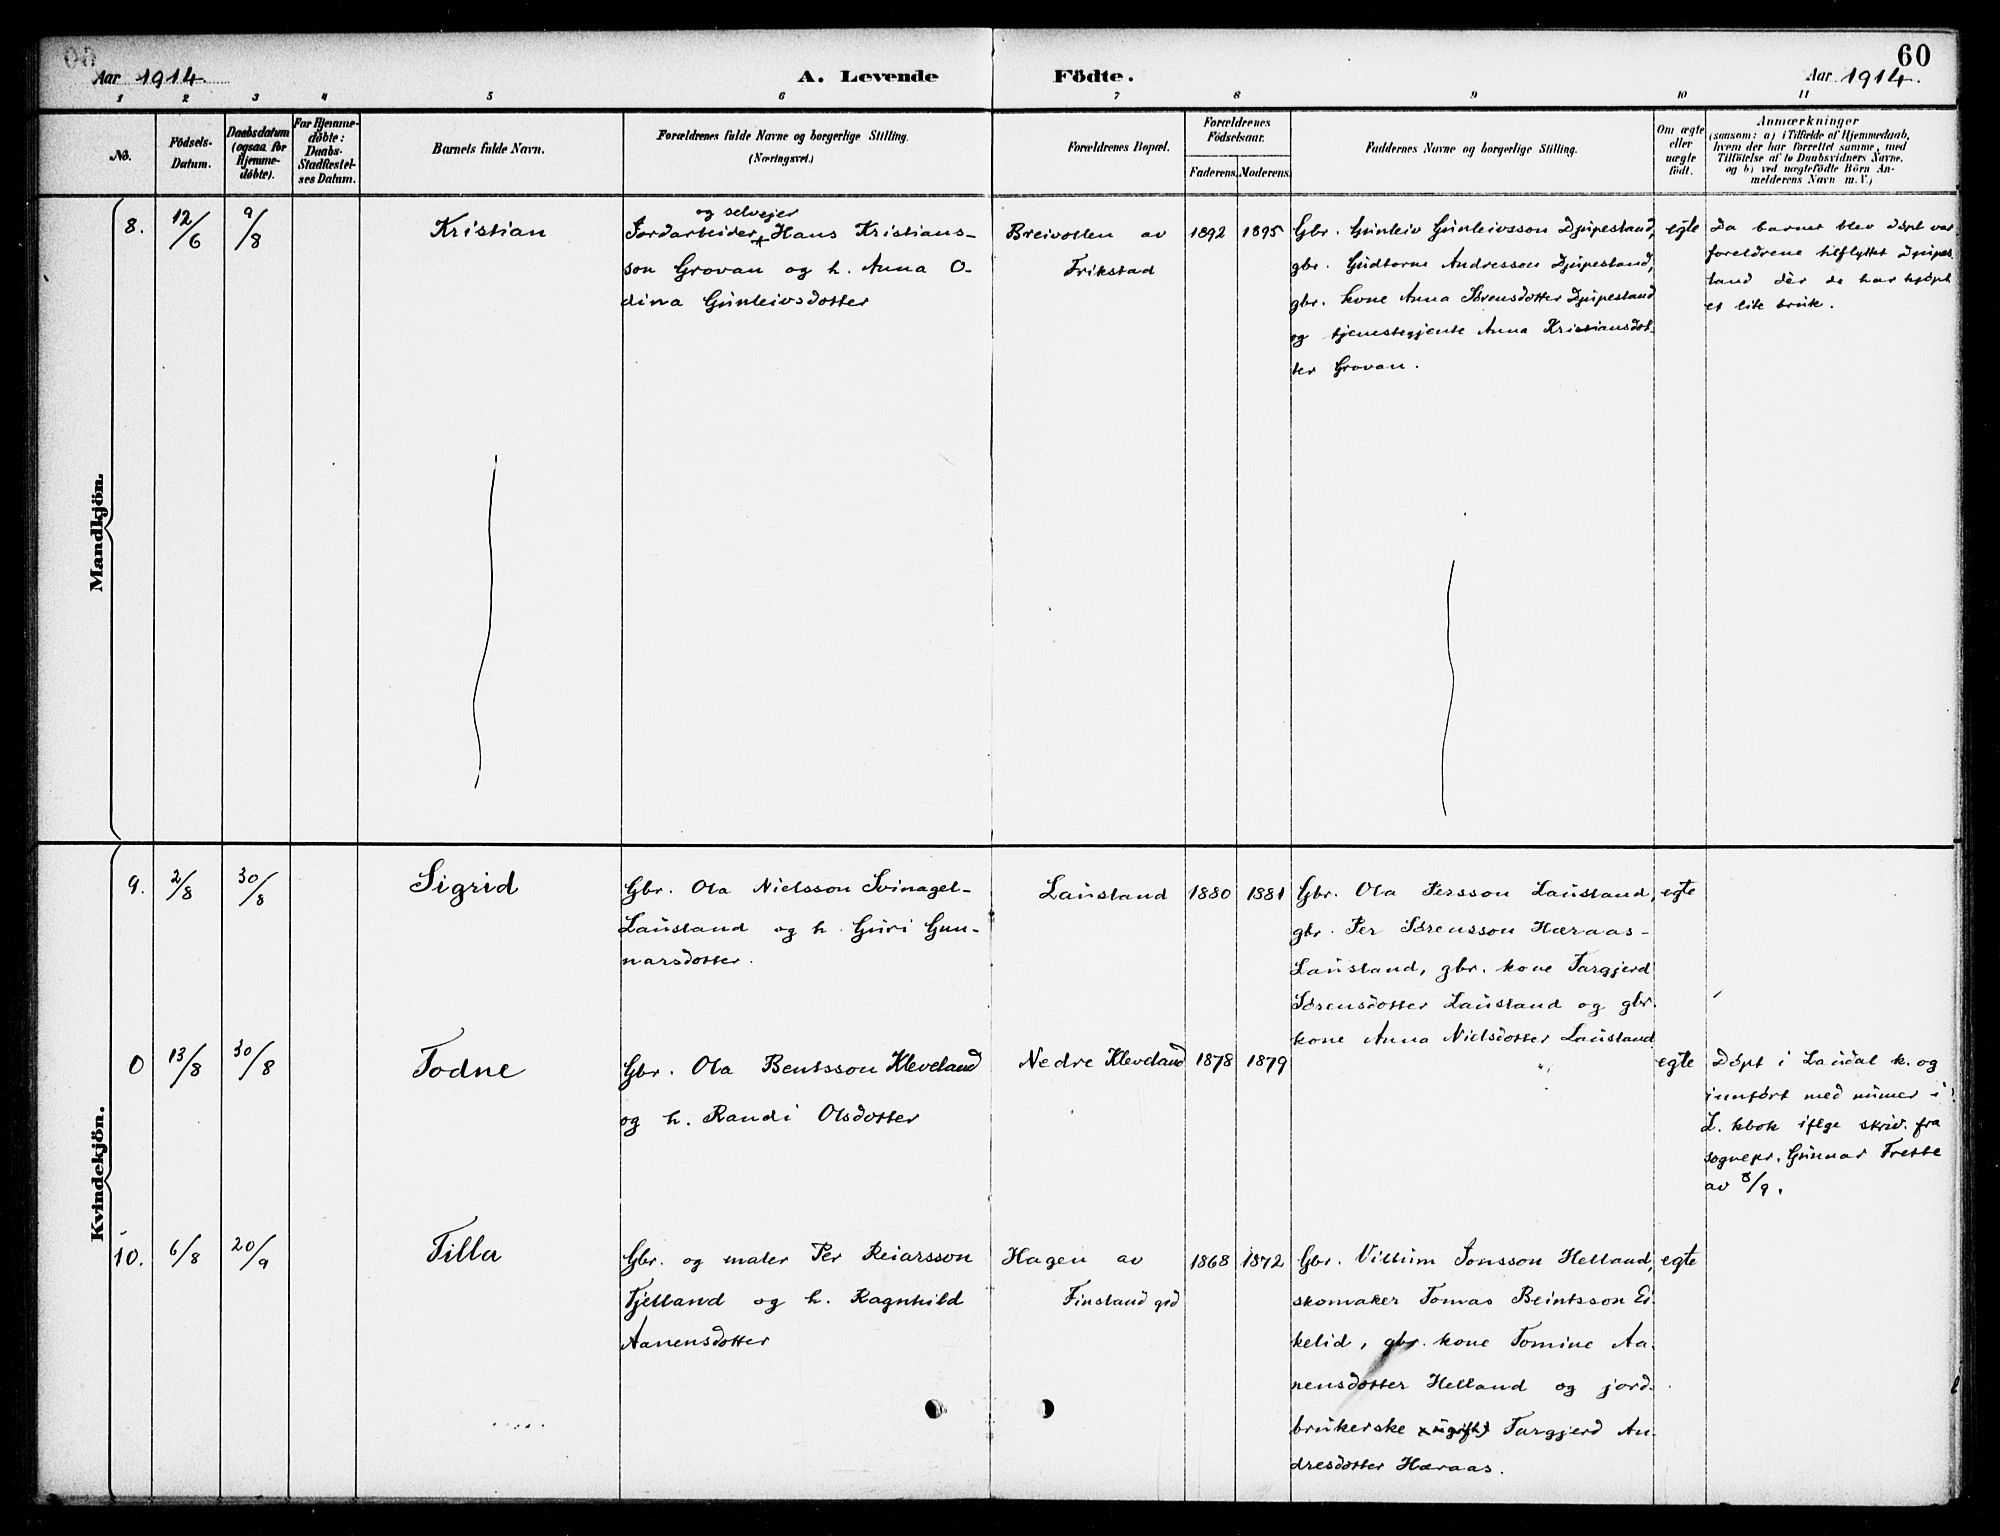 60
Aar 1914.
A. Levende Födte.
Aar 1914.
1 2 3 4 5 6 7 8 9 10 11
No.
Födsels-
Datum.
Daabsdatum
(ogsaa for
Hjemme-
döbte).
For Hjemme-
döbte:
Daabs-
Stadfæstel-
ses Datum.
Barnets fulde Navn.
Forældrenes fulde Navne og borgerlige Stilling.
(Næringsvei.)
Forældrenes Bopæl.
Forældrenes
Födselsaar.
Faderens. Moderens.
Faddernes Navne og borgerlige Stilling.
Om ægte
eller
uægte
födt.
Anmærkninger
(saasom: a) i Tilfælde af Hjemmedaab,
hvem der har forrettet samme, med
Tilföielse af to Daabsvidners Navne.
og b) ved uægtefödte Börn An-
melderens Navn m. V.)
Mandkjön.
8.
12/6
9/8
Kristian
og selvejer
Jordarbeider + Hans Kristians-
son Grovan og h. Anna O-
dina Gunleivsdotter
Breivollen av
Frikstad
1892
1895
Gbr. Gunleiv Gunleivsson Djupesland,
gbr. Gudtorne Andresson Djupesland,
gbr. kone Anna Sørensdotter Djupesland
og tjenestegjente Anna Kristiansdot-
ter Grovan.
egte
Da barnet blev døpt var
foreldrene tilflyttet Djupes-
land dèr de har kjøpt
et lite bruk.
Kvindekjön.
9.
2/8
30/8
Sigrid
Gbr. Ola Nielsson Svinagel-
Lausland og h. Guri Gun-
narsdotter.
Lausland
1880
1881
Gbr. Ola Persson Lausland,
gbr. Per Sørensson Hæraas-
Lausland, gbr. kone Targjerd
Sørensdotter Lausland og gbr.
kone Anna Nielsdotter Lausland
egte
0
13/8
30/8
Todne
Gbr. Ola Bentsson Kleveland
og h. Randi Olsdotter
Nedre Kleveland
1878
1879
egte
Døpt i Laudal k. og
innført med numer i
L. kbok iflge skriv. fra
sognepr. Gunnar Trette
av 8/9.
10.
6/8
20/9
Tilla
Gbr. og maler Per Reiarsson
Tjelland og h. Ragnhild
Aanensdotter
Hagen av
Finsland grd
1868
1872
Gbr. Villum Jonsson Helland,
skomaker Tomas Beintsson Ei-
kelid, gbr. kone Tomine Aa-
nensdotter Helland og jord-
brukerske (ugift) Targjerd An-
dresdotter Hæraas.
egte